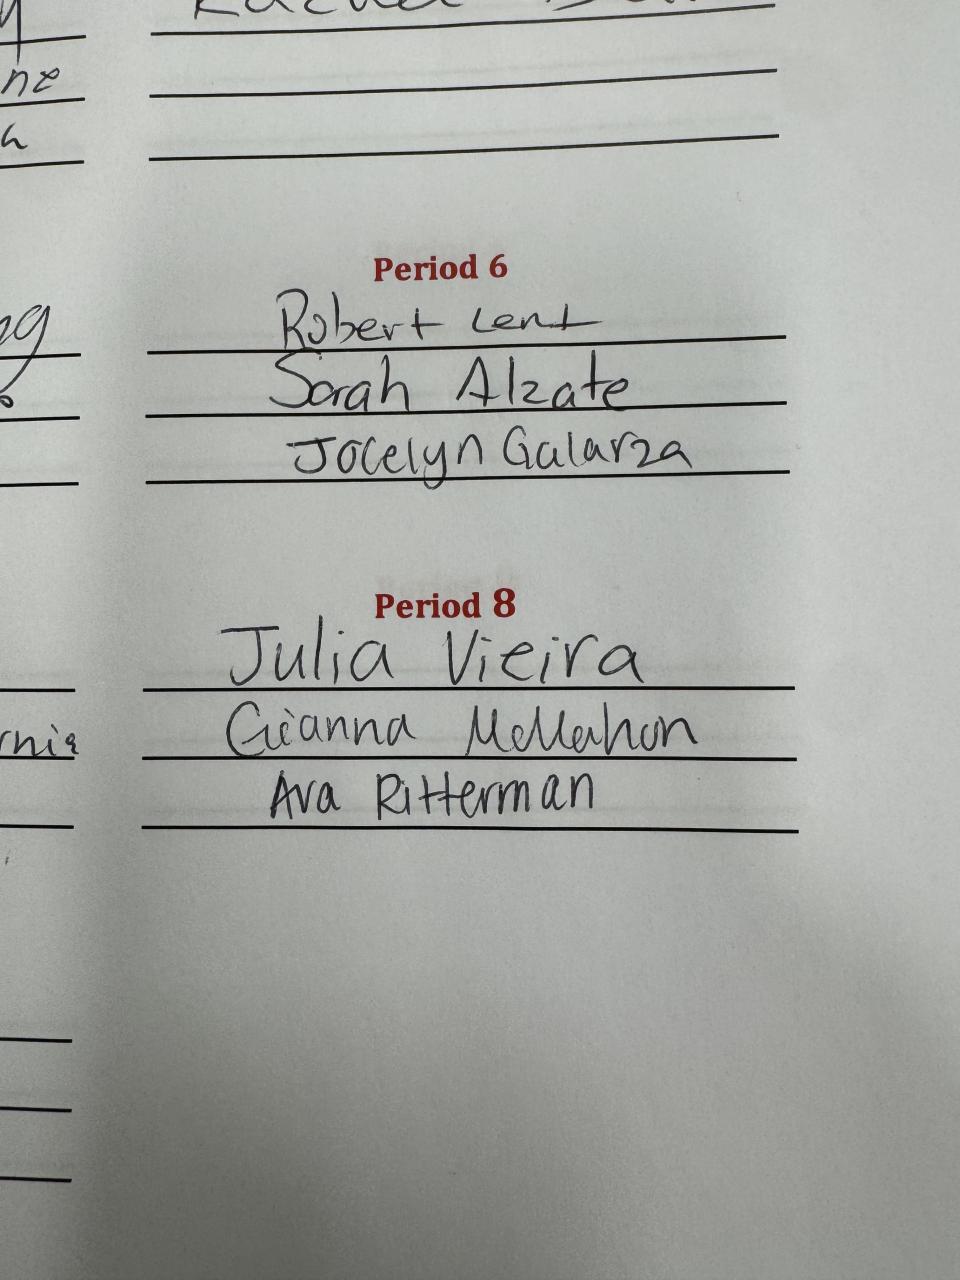 Period 6
Robert Lent
Sarah Alzate
Jocelyn Galarza
Period 8
Julia Vieira
Gianna McMahon
Ava Ritterman